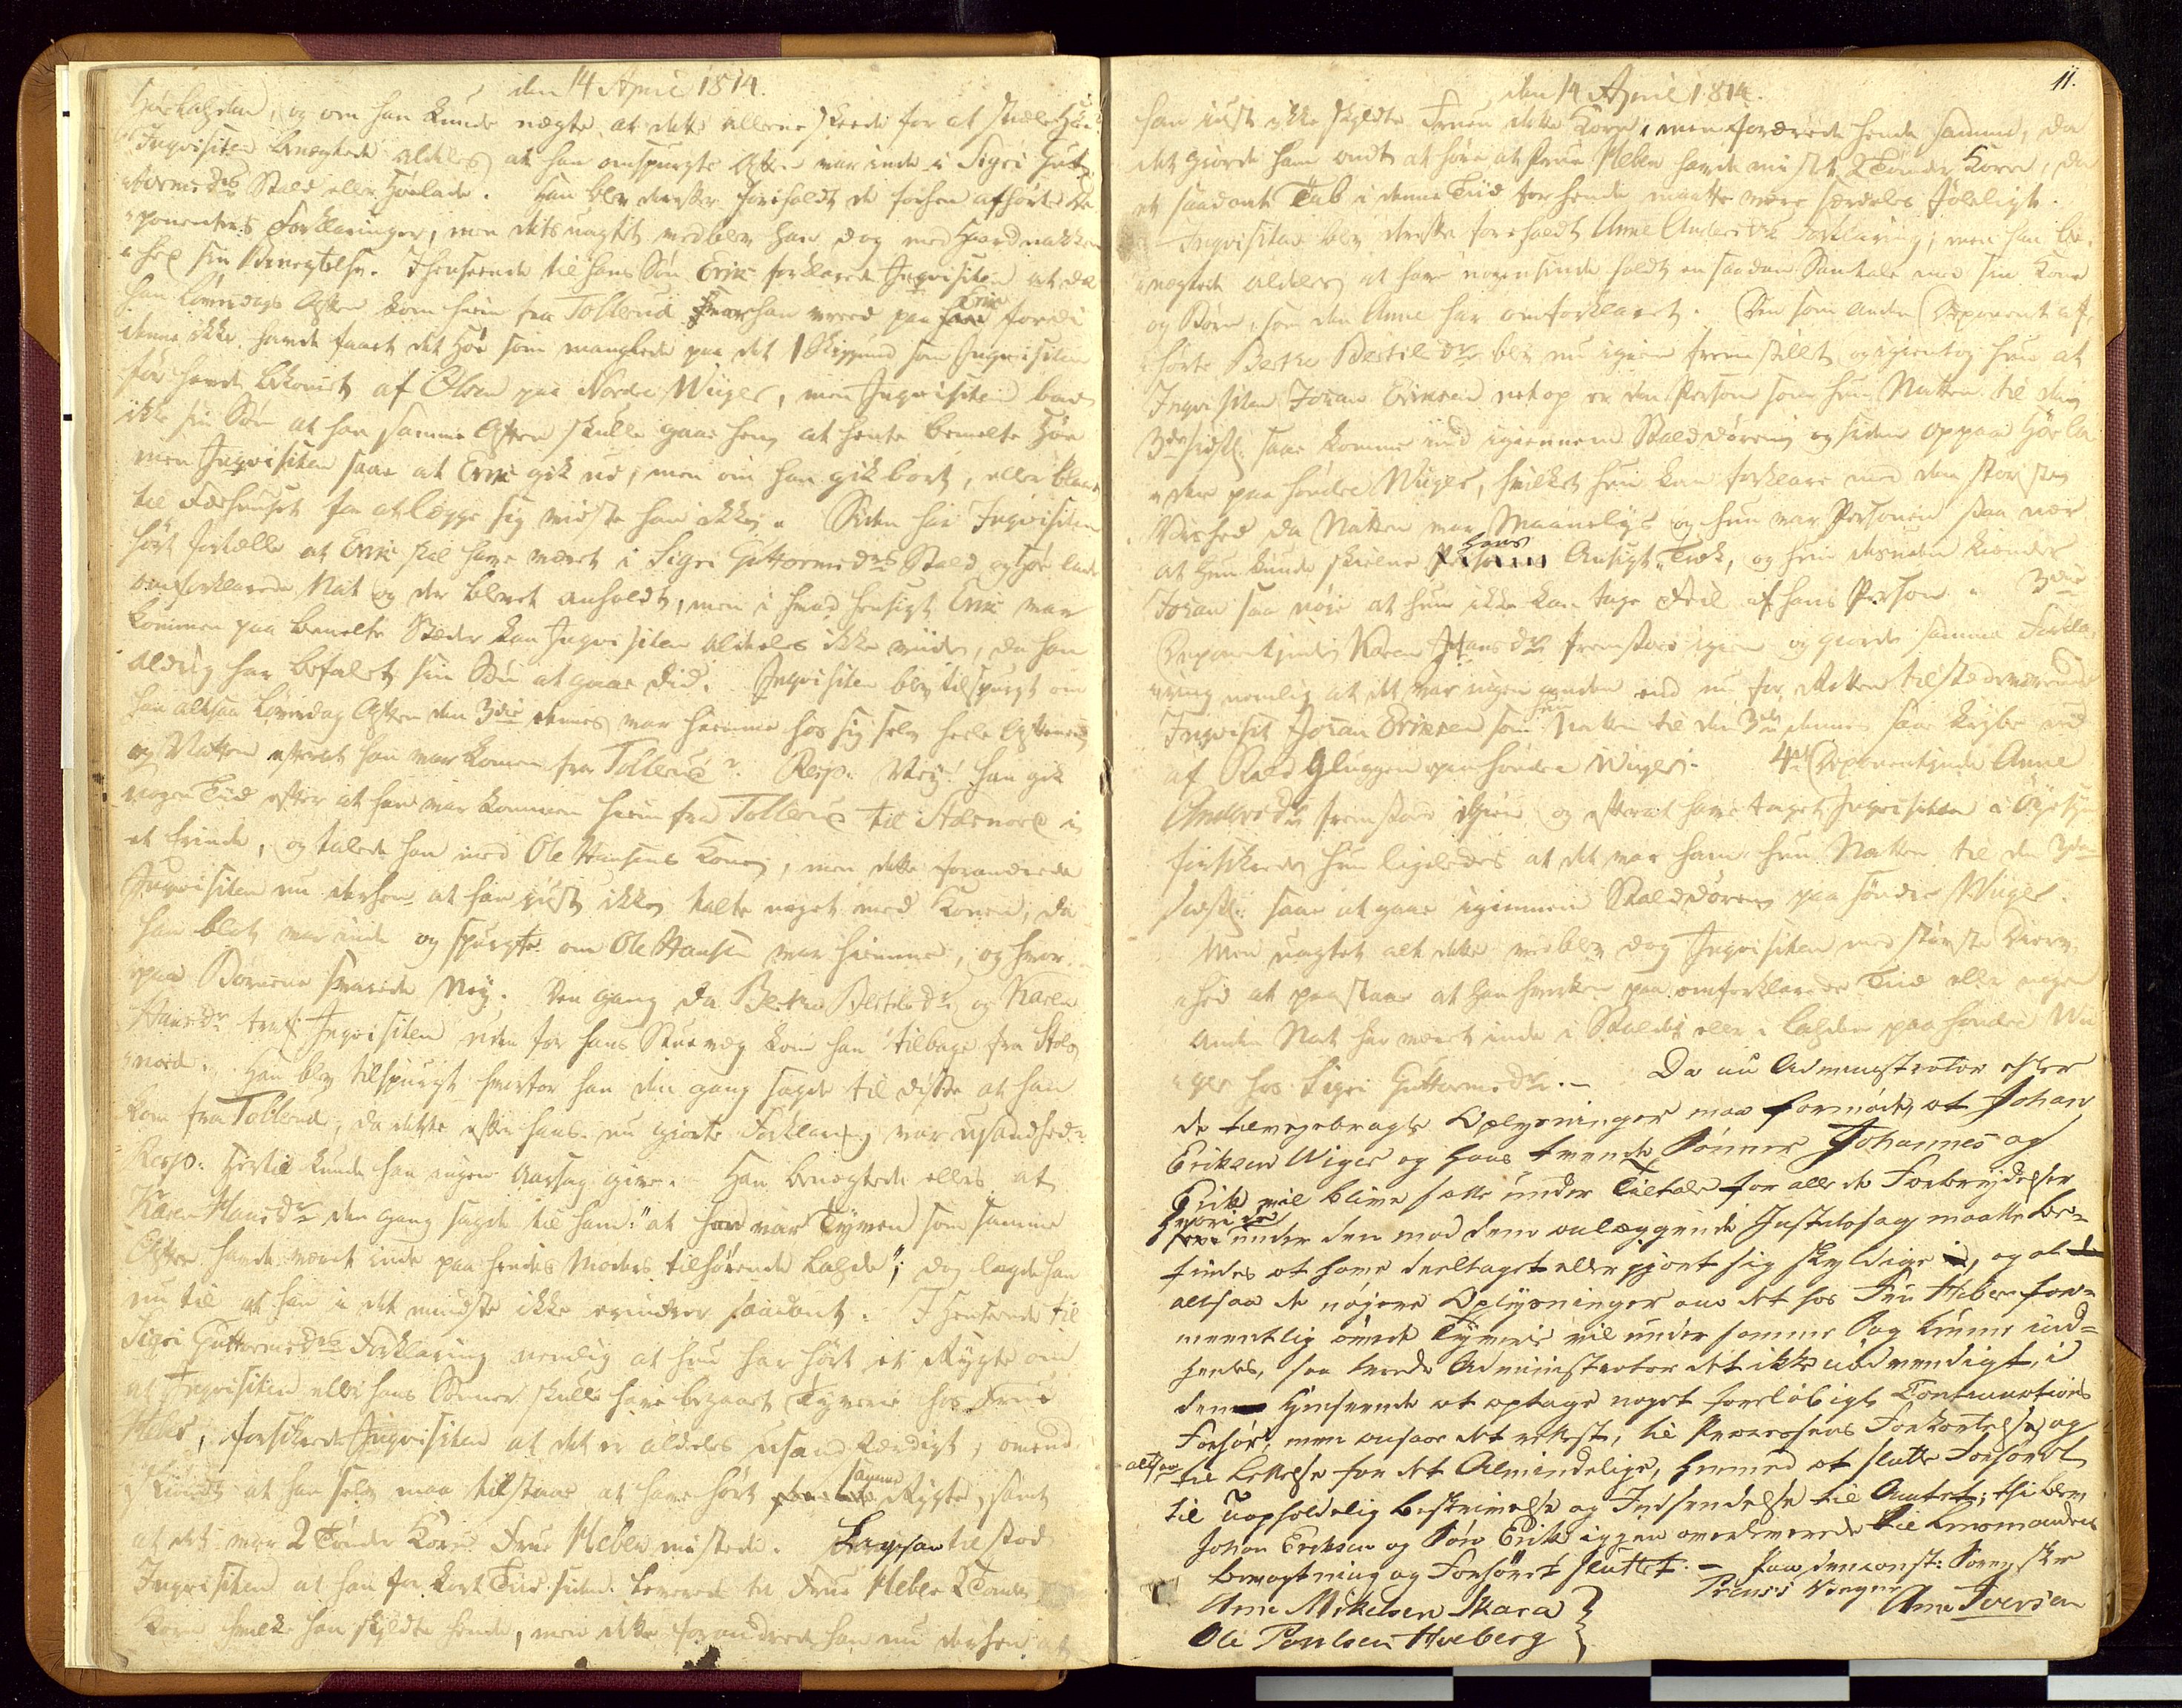 den 14 April 1814.
Høeladen, og om han kunde nægte at dette allene skeede for at stiæle Høe?
Inqvisiten benægtede aldeles at han omspurgte Aften var inde i Sigri Gut-
tormsdrs Stald eller Høelade. Han blev derefter foreholdt de forhen afhørte De-
ponenters Forklaringer, men dets uagtet vedblev han dog med Haardnakken-
hed sin Benægtelse. I henseende til hans Søn Eric forklarede Inqvisiten at da
han Løverdags Aften kom hiem fra Tollerud han vreed paa Eric fordi
denne ikke havde faaet det Høe som manglede paa det 1 Skippund som Inqvisiten
før havde bekomet af Olen paa Nordre Wiiger, men Inqvisiten bad
ikke sin Søn at han samme Aften skulle gaae hen at hente bemelte Høe
men Inqvisiten saae at Eric gik ud, men om han gik bort, eller blot
til Fæehuuset for at lægge sig vidste han ikke. Siden har Inqvisiten
hørt fortælle at Eric skal have været i Sigri Guttormsdrs Stald og Høe lade
omforklarede Nat og der blevet anholdt, men i hvad hensigt Eric var
kommen paa bemelte Stæder kan Inqvisiten aldeles ikke viide, da han
aldrig har befalet sin Søn at gaae did. Inqvisiten blev tilspurgt om
han altsaa Løverdag Aften den 3die dennes var hiemme hos sig selv heele Aftenen
og Natten efterat han var komen fra Tollerud? Resp: Ney! han gik
nogen Tiid efter at han var kommen hiem fra Tollerud til Stornord i
et Erinde, og talede han med Ole Hansens Kone, men dette forandrede
Inqvisiten nu derhen at han just ikke talte noget med Konen, da
han blot var inde og spurgte om Ole Hansen var hiemme, og hvor-
paa Børnene svarede Ney. Den gang da Berthe Bertelsdr og Karen
Hansdr traf Inqvisiten uden for hans Stuevæg kom han tilbage fra Stor-
nord. Han blev tilspurgt hvorfor han den gang sagde til disse at han
kom fra Tollerud, da dette efter hans nu giorte Forklaring var usandhed?
Resp: Hertil kunde han ingen Aarsag give. Han benægtede ellers at
Karen Hansdr den gang sagde til ham: "at han var Tyven som samme
Aften havde været inde paa hendes Moders tilhørende Lahde"; dog lagde han
nu til at han i det mindste ikke erindrer saadant. I Henseende til
Sigri Guttormsdrs Forklaring nemlig at hun har hørt et Rygte om
at Inqvisiten eller hans Sønner skulle have begaaet Tyverie hos Frue
Heber, forsikrede Inqvisiten at det er aldeles usandfærdigt, omend-
skiøndt at han selv maa tilstaae at have hørt samme Rygte, samt
at det var 2 Tønder Korn Frue Heber mistede. tilstod
Inqvisiten at han for kort Tiid siden leverede til Frue Heber 2 Tønder
Korn hvilke han skyldte hende, men dette forandrede han nu derhen at
11.
den 14 April 1814.
han just ikke skyldte Fruen dette Korn, men forærede hende samme, da
det giorde ham ondt at høre at Frue Heber havde mistet 2 Tønder Korn, da
et saadant Tab i denne Tiid for hende maatte være særdeles føleligt.
Inqvisiten blev derefter foreholdt Anne Andersdrs Forklaring; men han be-
nægtede aldeles at have nogensinde holdt en saadan Samtale med sin Kone
og Børn, som den Anne har omforklaret. Den som anden Deponent af-
hørte Berthe Bertilsdr blev nu igien fremstillet og igientog hun at
Inqvisiten Johan Ericksen netop er den Person som hun Natten til den
3die sidstl: saae komme ind igiennem Stalddøren og siden op paa Høela-
den paa søndre Wiiger, hvilket hun kan forklare med den største
Vished da Natten var Maanelys og hun var Personen saa nær
at hun kunde skielne Hans Ansigts Træk, og hun desuden kiender
Johan saa nøie at hun ikke kan tage Feil af hans Person. 3die
Deponentinde Karen Hansdr fremstod igien og giorde samme Forkla-
ring nemlig at det var ingen anden end nu for Retten tilstædeværende
Inqvisit Johan Ericksen som hun Natten til den 3die dennes saae krybe ud
af Stald Gluggen paa søndre Wiiger. 4de Deponentinde Anne
Andersdr fremstod igien og efterat have taget Inqvisiten i Øyesyn
forsikrede hun ligeledes at det var ham hun Natten til den 3die
sidstl: saae at gaae igiennem Stalddøren paa søndre Wiiger.
Men uagtet alt dette vedblev dog Inqvisiten med største Dierv-
hed at paastaae at han hverken paa omforklarede Tiid eller nogen
anden Nat har været inde i Stalden eller i Lahden paa søndre Wii-
ger hos Sigri Guttormsdr. – Da nu Administrator efter
de tilvejebragte Oplysninger maa formode, at Johan
Eriksen Wiger og hans tvende Sønner Johannes og
Erik vil blive satte under Tiltale for alle de Forbrydelser
hvori de under den mod dem anlæggende Justitssag maatte be-
findes at have deeltaget eller gjort sig skyldige i, og at
altsaa de nøjere Oplysninger om det hos Fru Heber for-
meentlig øvede Tyverie vil under samme Sag kunne ind-
hentes, saa troede Administrator det ikke nødvendigt, i
denne Henseende at optage noget foreløbigt Continuations
Forhør, men ansaae det rettest, til Processens Forkortelse og
altsaa til Lettelse for det Almindelige, hermed at slutte Forhøret
til uopholdelig Beskrivelse og Indsendelse til Amtet; thi blev
Johan Eriksen og Søn Erik igjen overleverede til Lensmandens
Bevogtning og Forhøret sluttet. – Paa den const: Sorenskr
Vegne
Arne Mikelsen Skara Arne Iversen
Ole Poulsen Hveberg